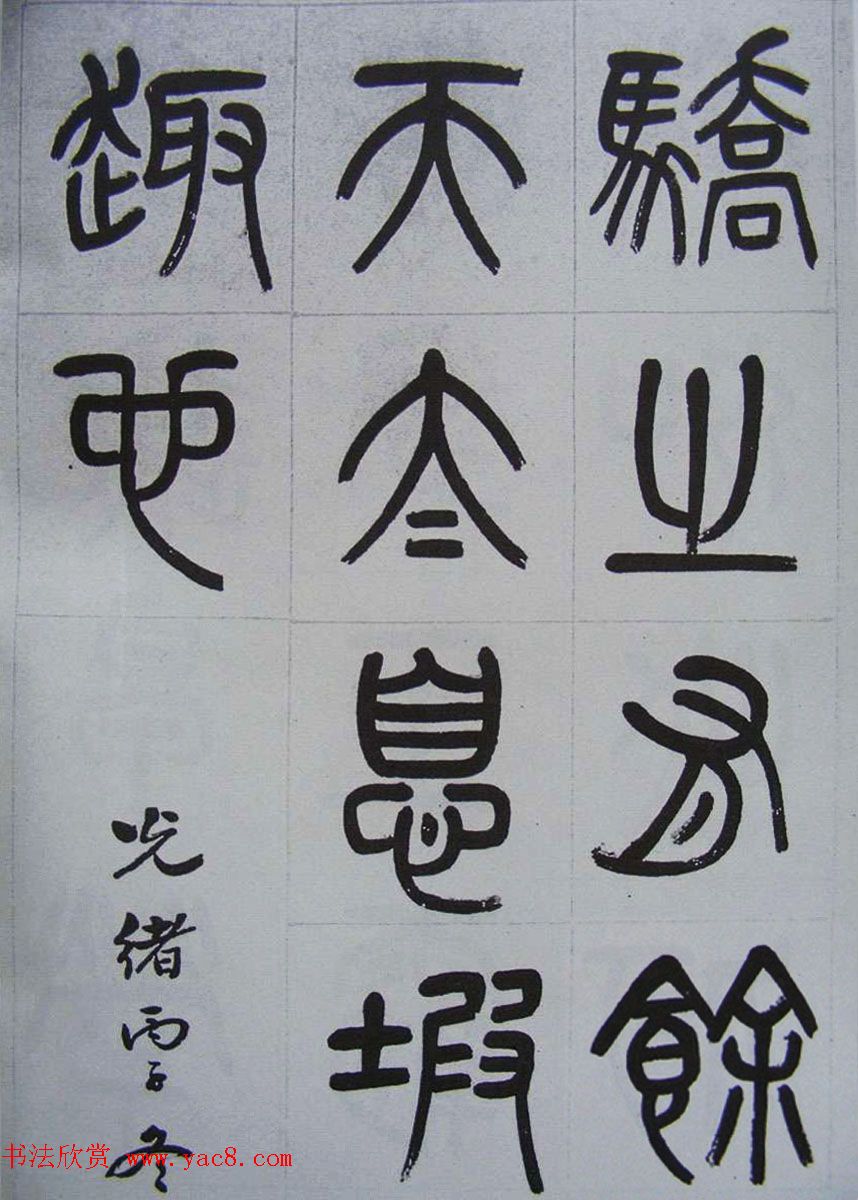 驕之有餘
天太息
趣也
光緒丙子冬
书法欣赏 www.yac8.com